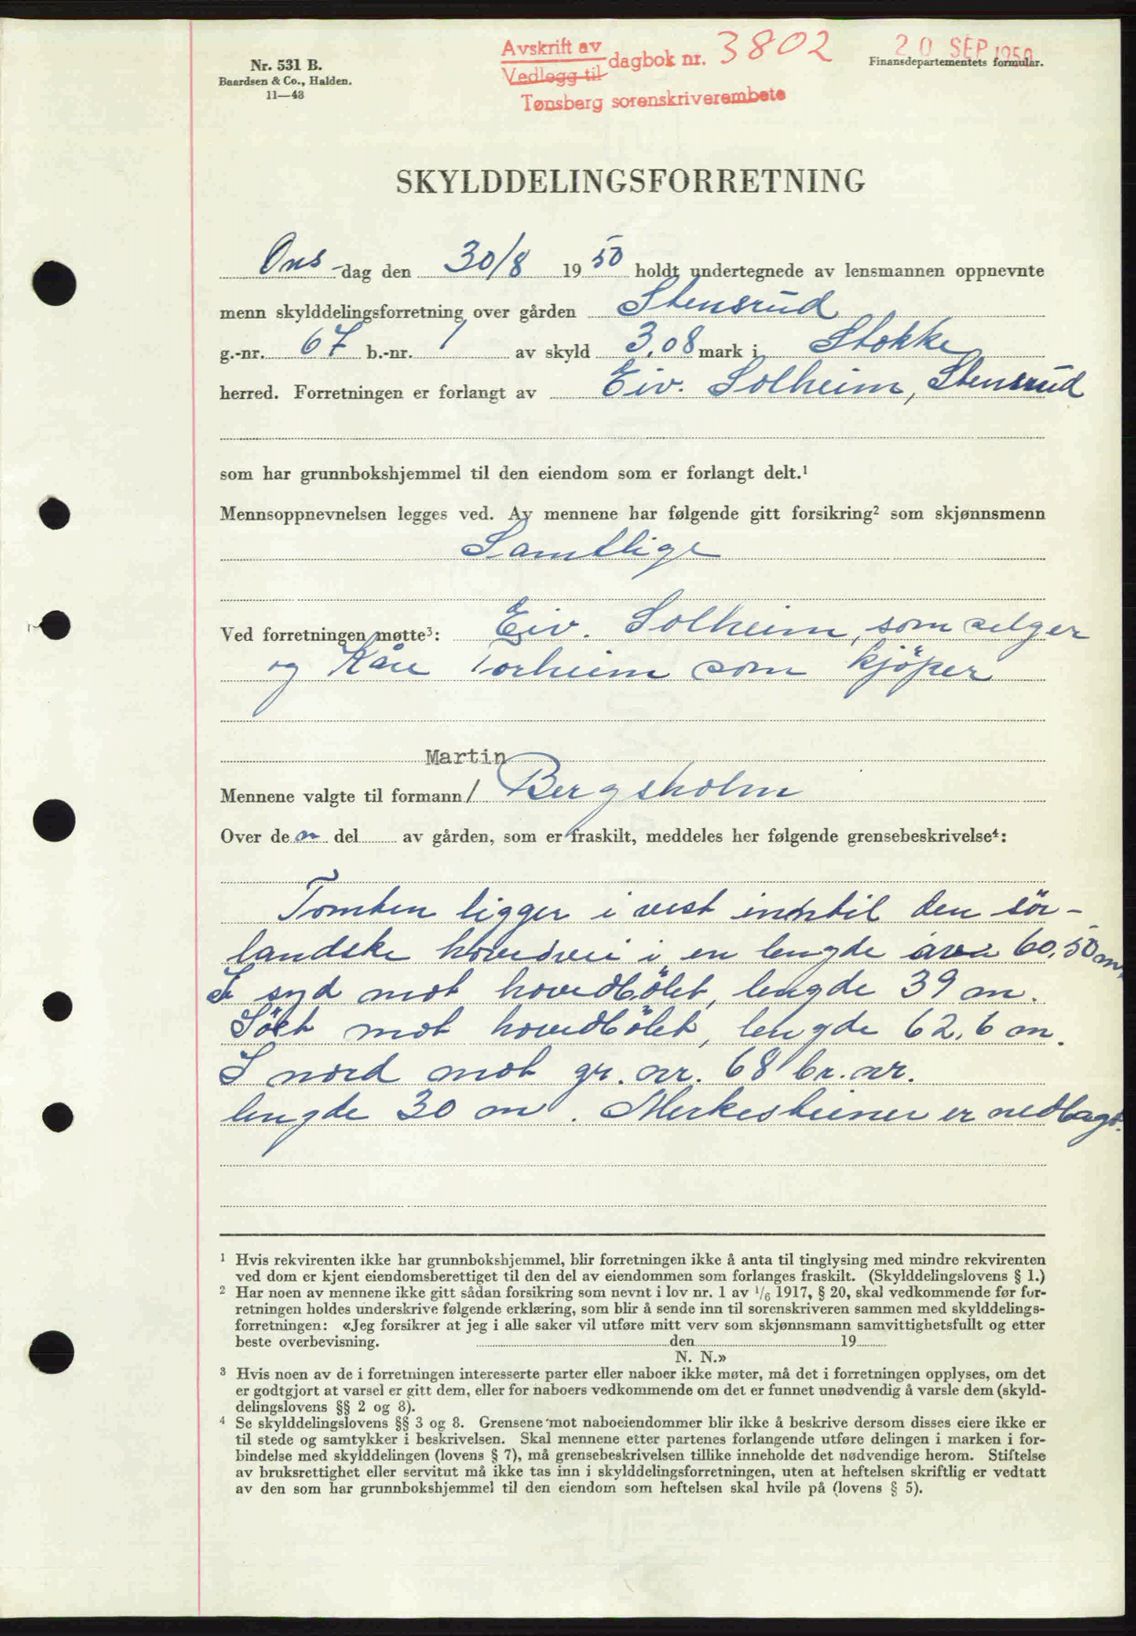 Nr. 531 B.
Baardsen & Co., Halden.
11—43
Avskrift av
Vedlegg til
dagbok nr. 3802
Tønsberg sorenskriverembete
20 SEP 1950
Finansdepartementets formular.
SKYLDDELINGSFORRETNING
Ons-dag den 30/8 1950 holdt undertegnede av lensmannen oppnevnte
menn skylddelingsforretning over gården Stensrud
g.-nr. 67 b.-nr. 1 av skyld 3,08 mark i Stokke
herred. Forretningen er forlangt av Eiv. Solheim, Stensrud
som har grunnbokshjemmel til den eiendom som er forlangt delt.¹
Mennsoppnevnelsen legges ved. Av mennene har følgende gitt forsikring² som skjønnsmenn
Samtlige
Ved forretningen møtte³: Eiv. Solheim, som selger
og Kåre Torheim som kjöper
Martin
Mennene valgte til formann / Bergsholm
Over den del av gården, som er fraskilt, meddeles her følgende grensebeskrivelse⁴:
Tomten ligger i vest inntil den sör-
landske hovedvei i en lengde av 60,50 m
I syd mot hovedbölet, lengde 39 m.
I öst mot hovedbölet, lengde 62,6 m.
I nord mot gr. nr. 68 br. nr.
lengde 30 m. Merkesteiner er nedlagt.
¹ Hvis rekvirenten ikke har grunnbokshjemmel, blir forretningen ikke å anta til tinglysing med mindre rekvirenten
ved dom er kjent eiendomsberettiget til den del av eiendommen som forlanges fraskilt. (Skylddelingslovens § 1.)
² Har noen av mennene ikke gitt sådan forsikring som nevnt i lov nr. 1 av 1/6 1917, § 20, skal vedkommende før for-
retningen holdes underskrive følgende erklæring, som blir å sende inn til sorenskriveren sammen med skylddelings-
forretningen: «Jeg forsikrer at jeg i alle saker vil utføre mitt verv som skjønnsmann samvittighetsfullt og etter
beste overbevisning. den 19
N. N.»
³ Hvis noen av de i forretningen interesserte parter eller naboer ikke møter, må det i forretningen opplyses, om det
er godtgjort at varsel er gitt dem, eller for naboers vedkommende om det er funnet unødvendig å varsle dem (skyld-
delingslovens §§ 2 og 8).
⁴ Se skylddelingslovens §§ 3 og 8. Grensene mot naboeiendommer blir ikke å beskrive dersom disses eiere ikke er
til stede og samtykker i beskrivelsen. Skal mennene etter partenes forlangende utføre delingen i marken i for-
bindelse med skylddelingen (lovens § 7), må grensebeskrivelsen tillike inneholde det nødvendige herom. Stiftelse
av bruksrettighet eller servitut må ikke tas inn i skylddelingsforretningen, uten at heftelsen skriftlig er vedtatt
av den som har grunnbokshjemmel til den eiendom som heftelsen skal hvile på (lovens § 5).